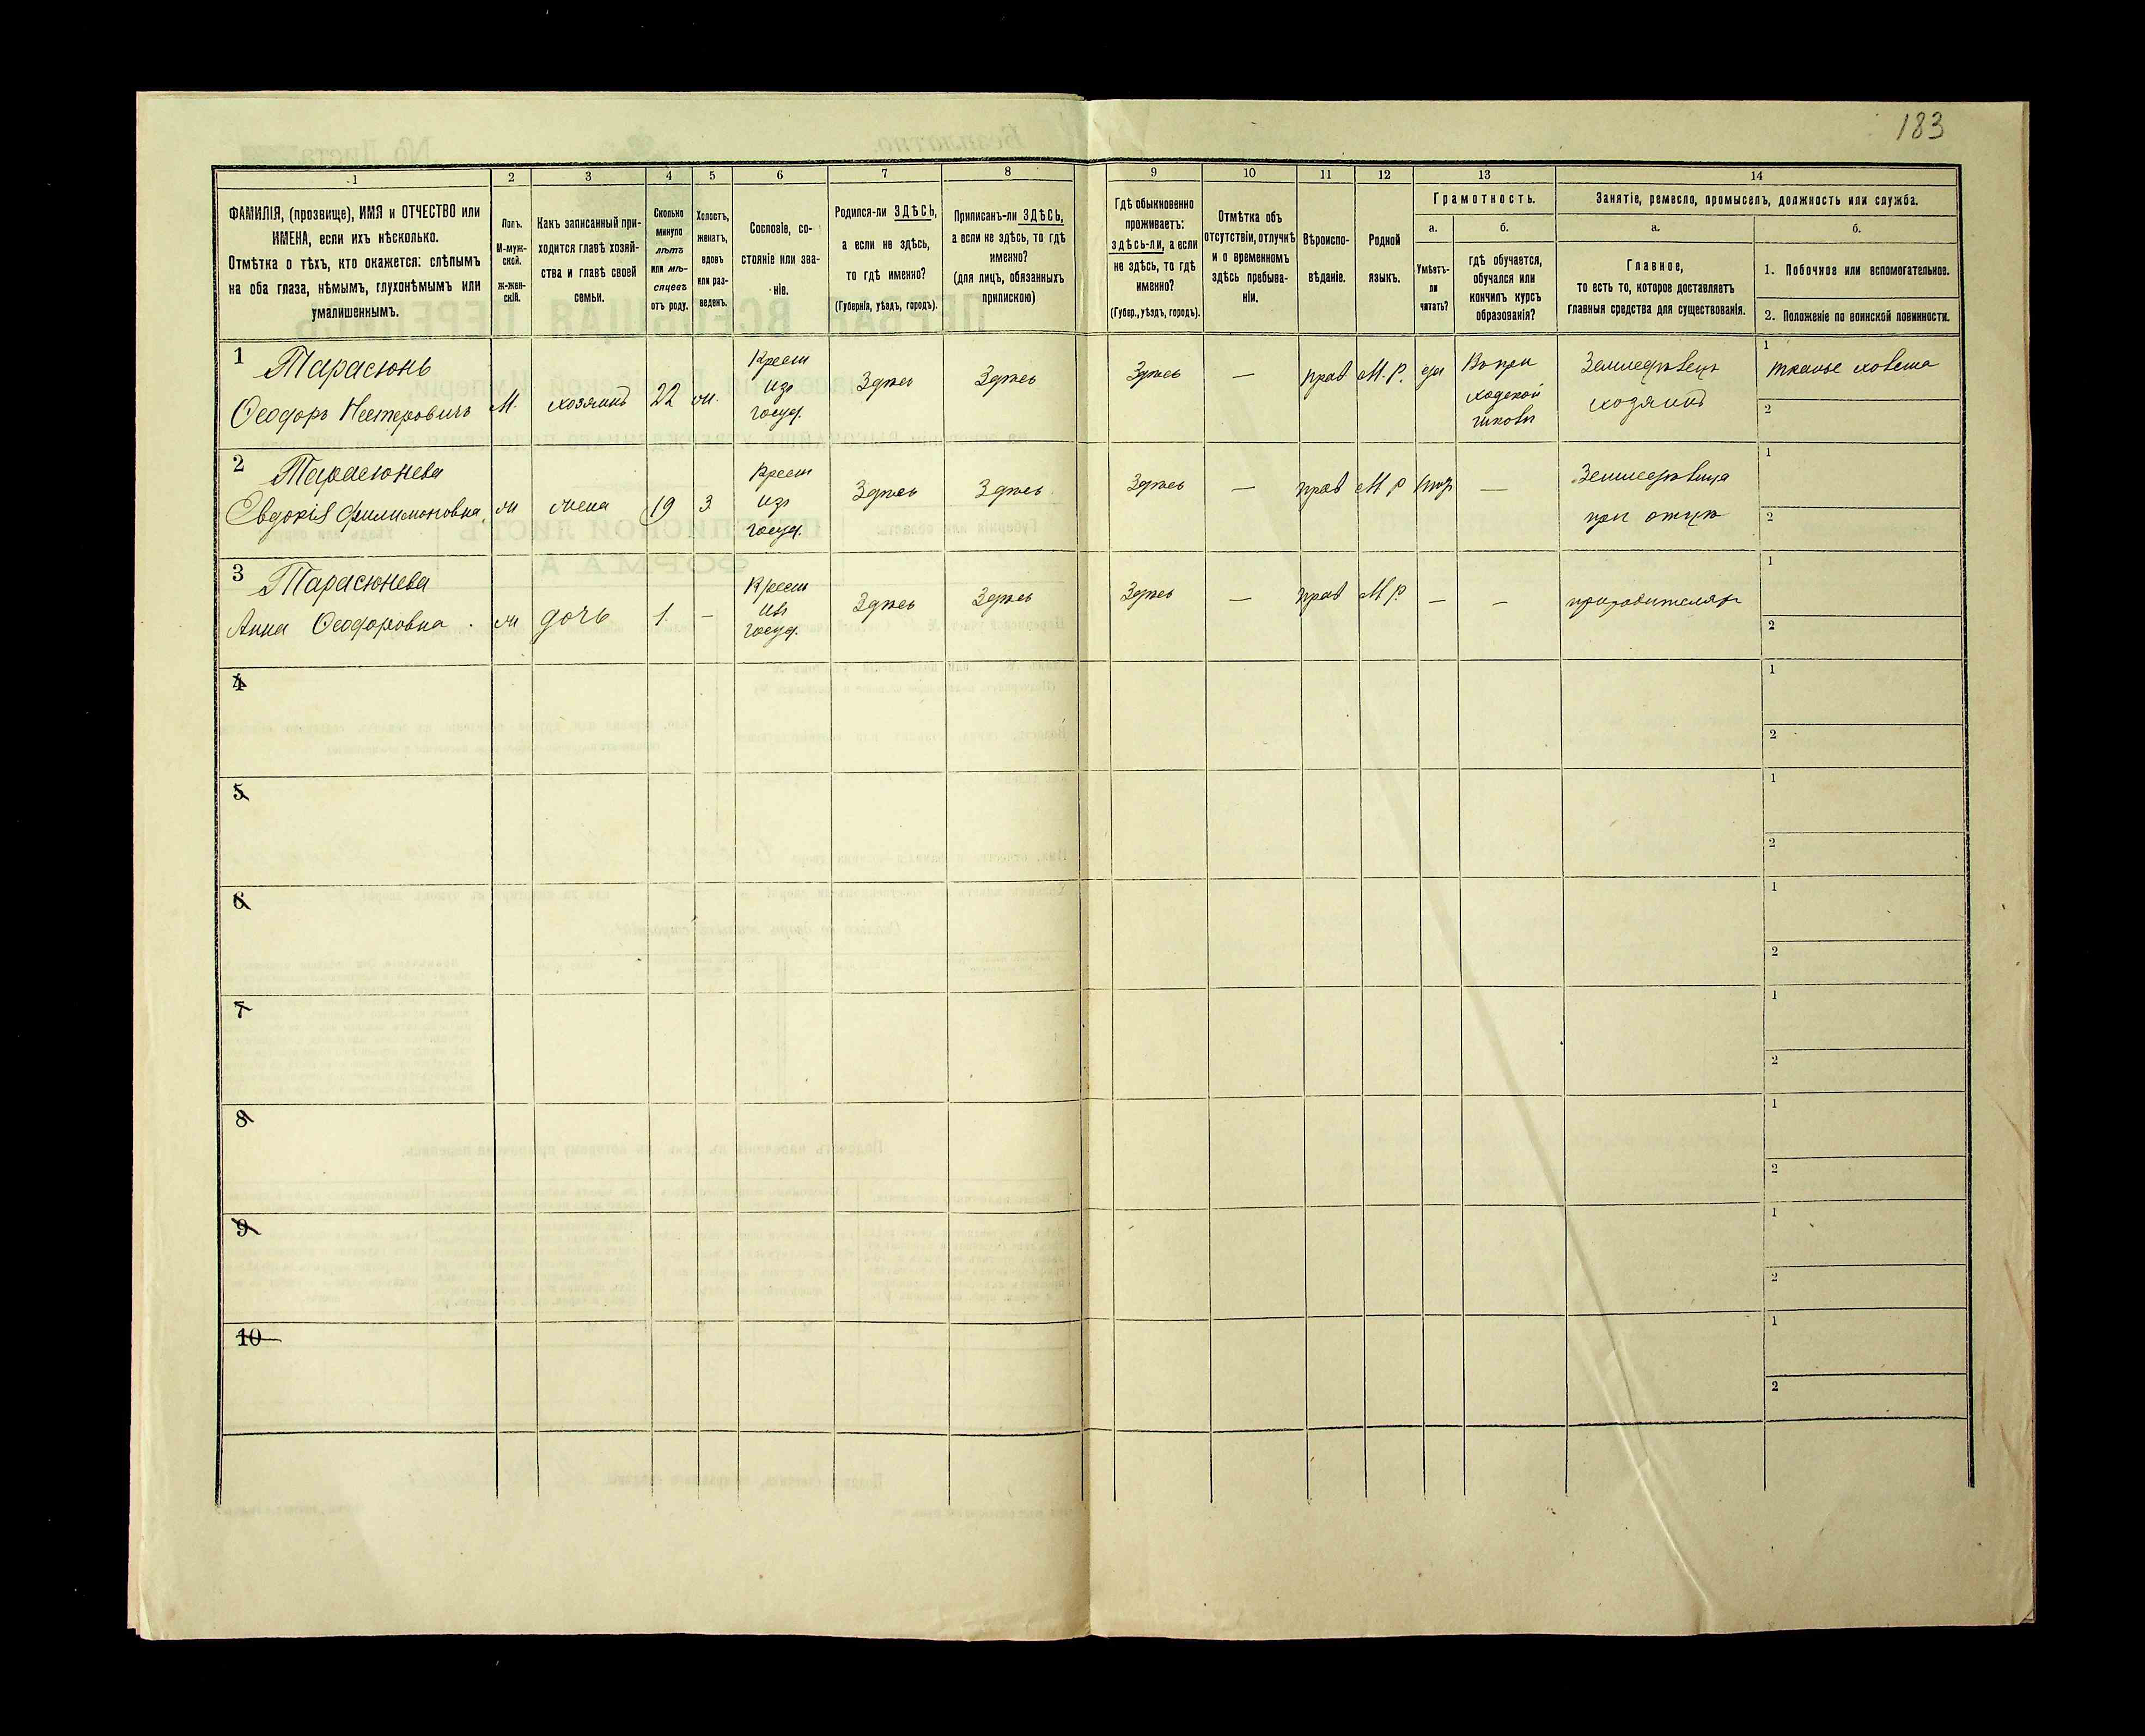 183
1
2
3
4
5
6
7
8
9
10
11
12
13
14
ФАМИЛІЯ, (прозвище), ИМЯ и ОТЧЕСТВО или
ИМЕНА, если ихъ нѣсколько.
Отмѣтка о тѣхъ, кто окажется: слѣпымъ
на оба глаза, нѣмымъ, глухонѣмымъ или
умалишеннымъ.
Полъ.
М-муж-
ской.
Ж-жен-
скій.
Какъ записанный при-
ходится главѣ хозяй-
ства и главѣ своей
семьи.
Сколько
минуло
лѣтъ
или мѣ-
сяцевъ
отъ роду.
Холостъ,
женатъ,
вдовъ
или раз-
веденъ.
Сословіе, со-
стояніе или зва-
ніе.
Родился-ли ЗДѢСЬ,
а если не здѣсь,
то гдѣ именно?
(Губернія, уѣздъ, городъ).
Приписанъ-ли ЗДѢСЬ,
а если не здѣсь, то гдѣ
именно?
(для лицъ, обязанныхъ
припискою)
Гдѣ обыкновенно
проживаетъ:
здѣсь-ли, а если
не здѣсь, то гдѣ
именно?
(Губер., уѣздъ, городъ).
Отмѣтка объ
отсутствіи, отлучкѣ
и о временномъ
здѣсь пребыва-
ніи.
Вѣроиспо-
вѣданіе.
Родной
языкъ.
Грамотность.
а.
Умѣетъ-
ли
читать?
б.
гдѣ обучается,
обучался или
кончилъ курсъ
образованія?
Занятіе, ремесло, промыселъ, должность или служба.
а.
Главное,
то есть то, которое доставляетъ
главныя средства для существованія.
б.
1. Побочное или вспомогательное.
2. Положеніе по воинской повинности.
1 Тарасюнь
Ѳеодоръ Нестеровичъ
М.
хозяинъ
22
ж.
Крест
изъ
госуд.
Здѣсь
Здѣсь
Здѣсь
—
прав
М. Р.
да
Въ при
ходской
школѣ
Земледѣлецъ
хозяинъ
1
тканье холста
2
2 Тарасюнева
Евдокія Филимоновна
ж
жена
19
З
Крест
изъ
госуд.
Здѣсь
Здѣсь
Здѣсь
—
прав
М Р
—
Земледѣлица
1
2
3 Тарасюнева
Анна Ѳеодоровна
ж
дочь
1
—
Крест
изъ
госуд.
Здѣсь
Здѣсь
Здѣсь
—
прав
М Р.
—
—
при родителяхъ
1
2
4
1
2
5
1
2
6
1
2
7
1
2
8
1
2
9
1
2
10
1
2